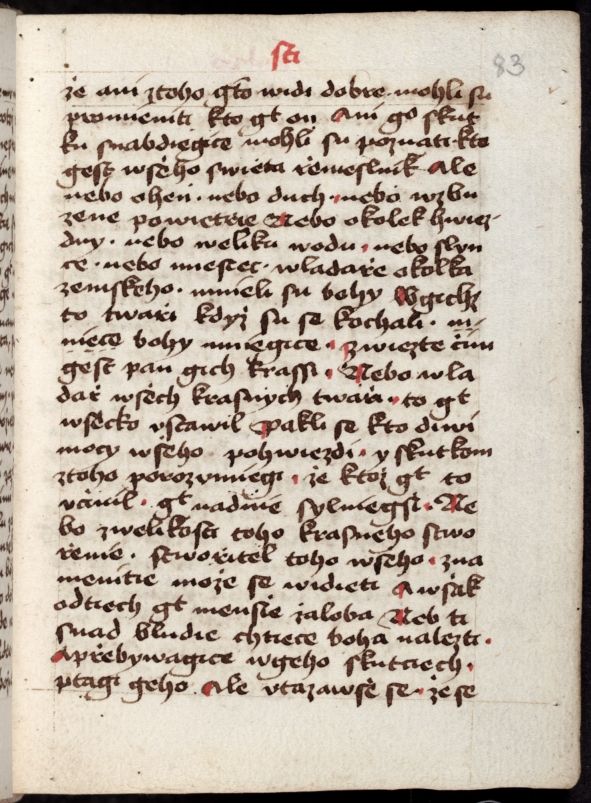 sti
83
že ani ztoho gt̃o widi dobre · mohli su
promieniti kto gt on Ani go skut
ku snabdiegice mohli su poznati kto
gest wšeho swieta řemeslnik Ale
nebo oheň · nebo duch · nebo wzbu
zene powietrie Nebo okolek hwiez-
dny · nebo weliku wodu · nebo slun
ce · nebo miesiec · wladaře okolka
zemskeho · mieli su bohy Wgichz
to twaři když su se kochali ·
niece bohy mniegice · zwiezte čim
gest pan gich krassi · Nebo wla
dař wšech krasnych twaři · to gt
wšecko vstawil Pakli se kto diwi
mocy wšeho pohwiezdi · y skutkom
ztoho porozumiegi · že ktož gt to
včinil · gt nadnie sylniegši · Ne
bo zwelikosti toho krasneho stwo
řenie · stwořitel toho wšeho · zna
menitie može se widieti Awšak
odtiech gt menšie žaloba Neb ti
snad bludie chtiece boha nalezti ·
Apřebywagice wgeho skutciech ·
ptagi geho Ale vtazawše se · že se